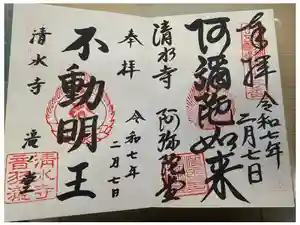 奉拝
令和七年
二月七日
阿彌陀如来
清水寺
阿弥陀堂
奉拝
令和七年
二月七日
不動明王
清水寺
清水寺